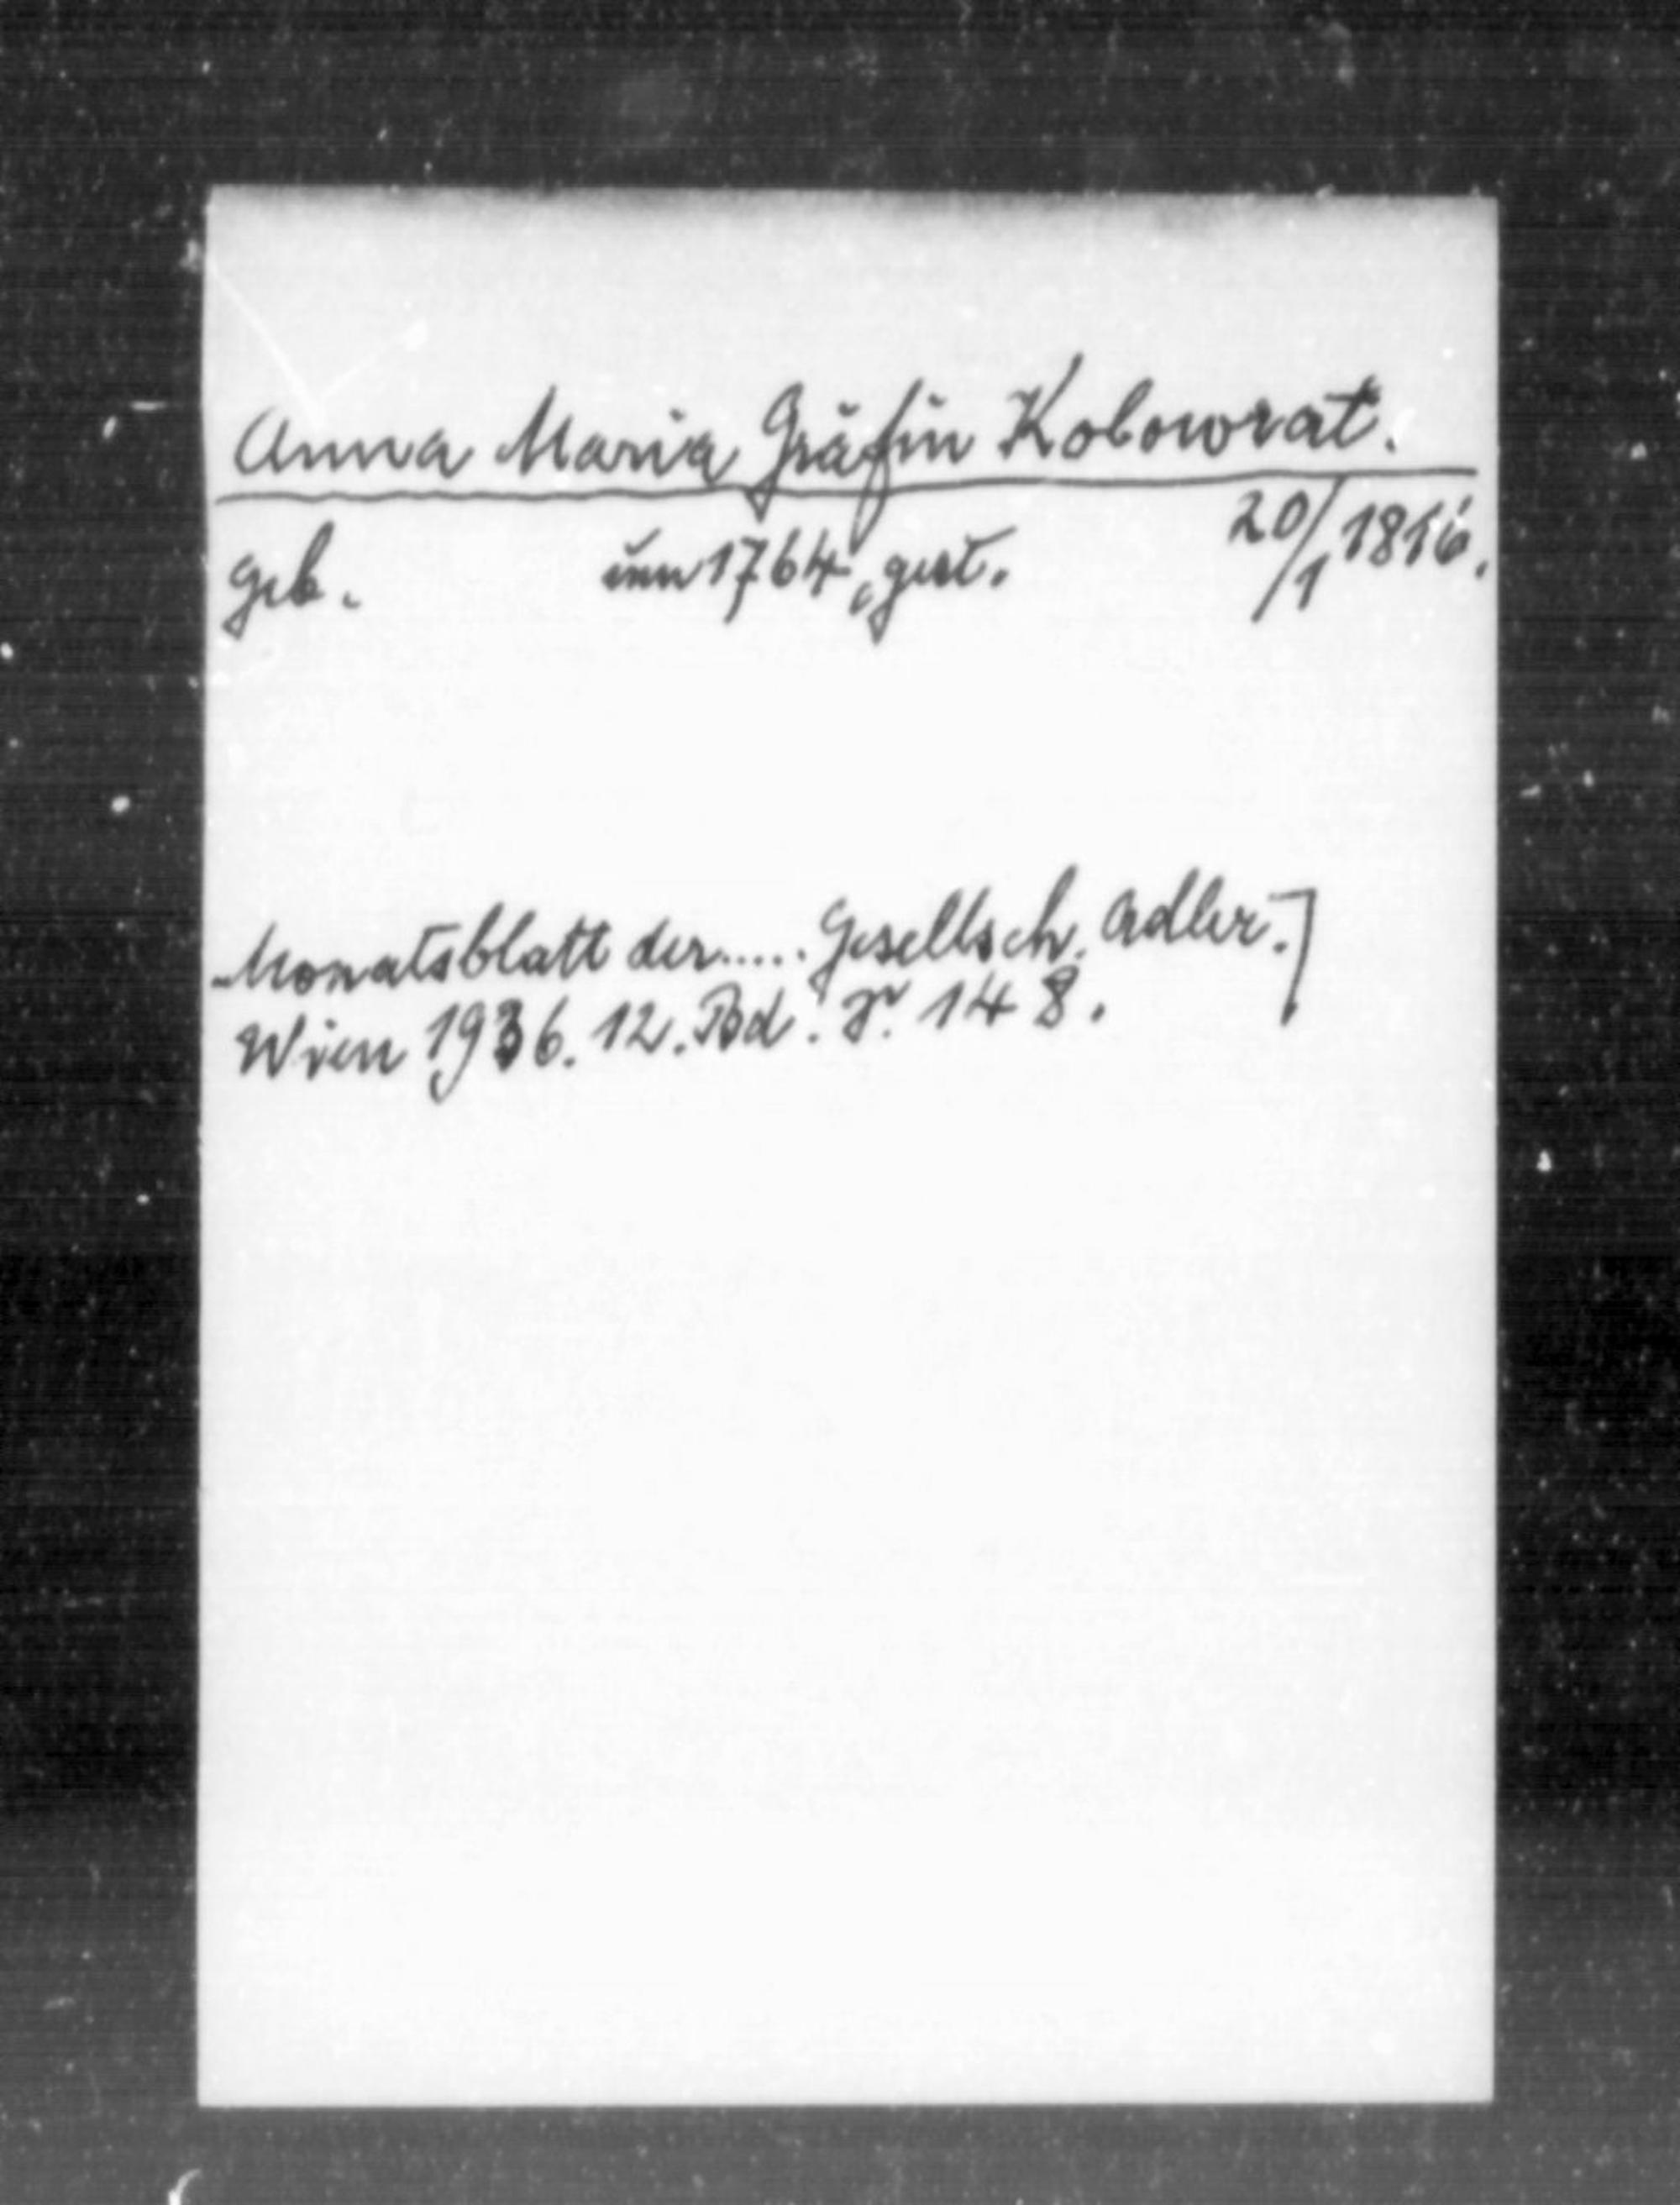 Anna Maria Gräfin Kolowrat.
geb. um 1764, gest. 20/1 1816.
Monatsblatt der..... Gesellsch. Adler.]
Wien 1936. 12. Bd. 148.